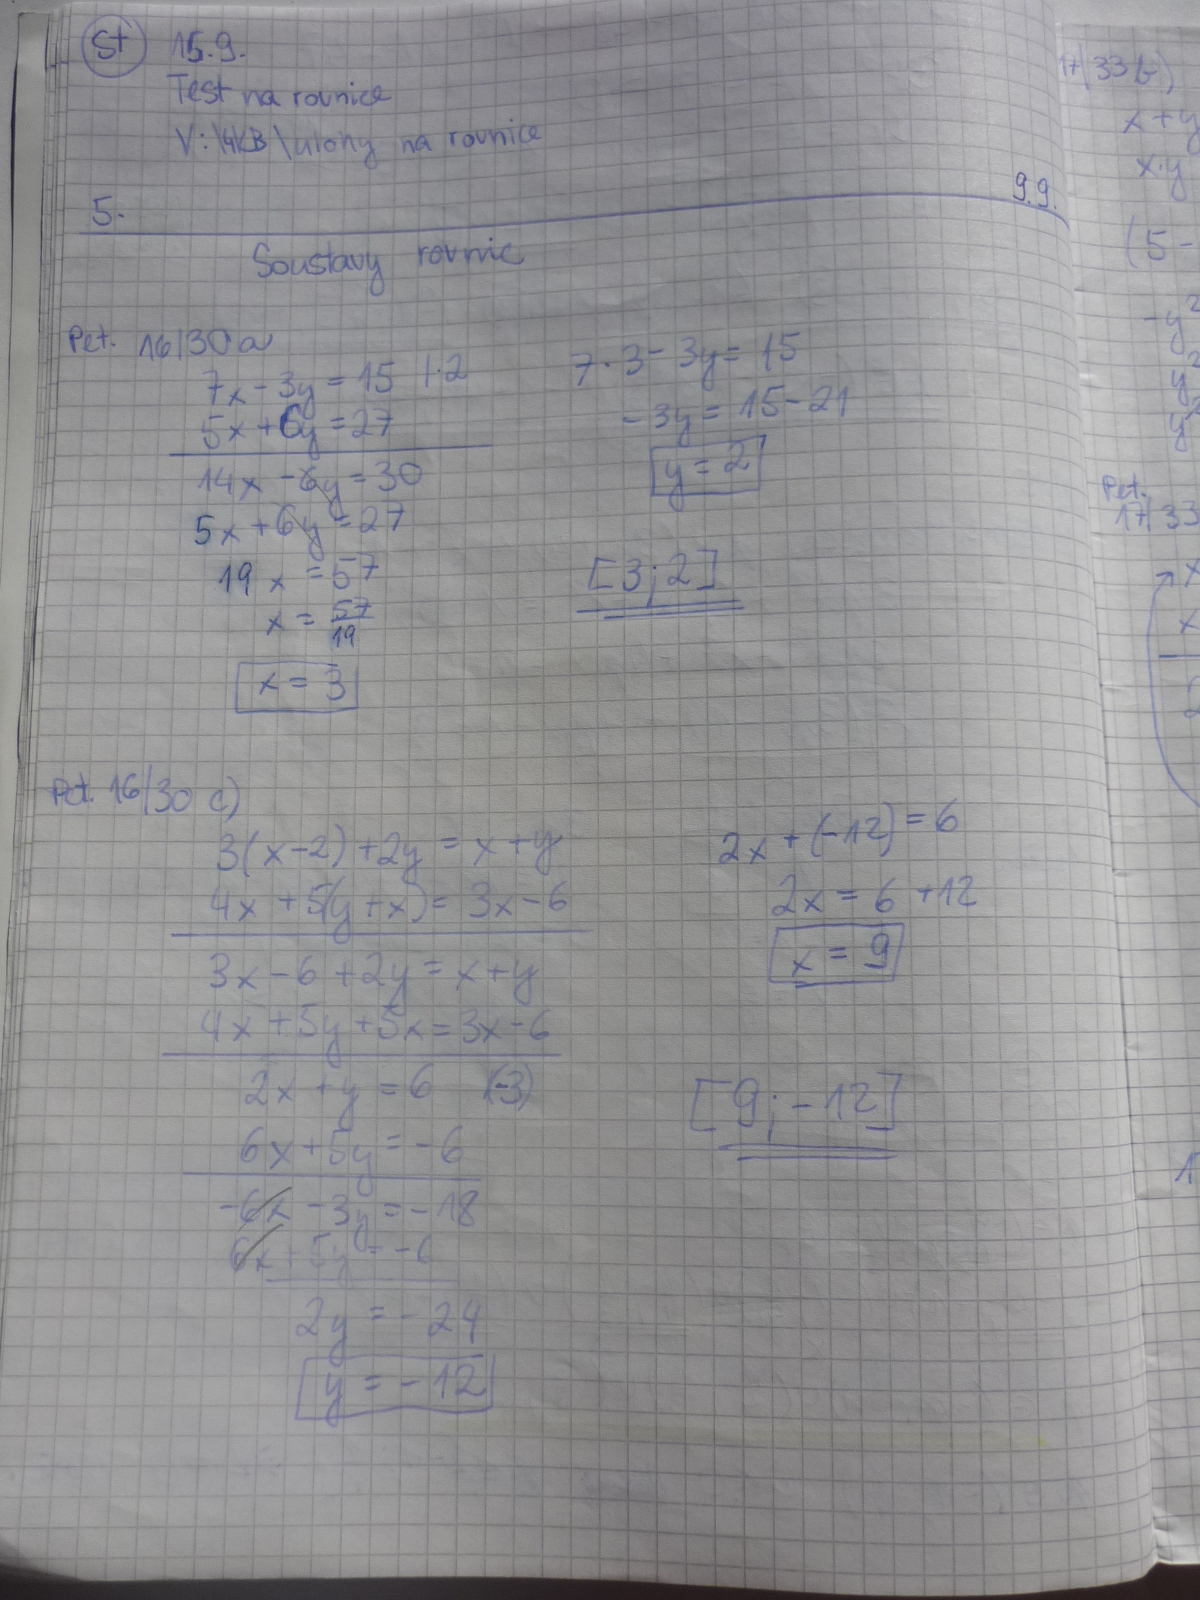 St 15.9.
Test na rovnice
V:\4KB\ulohy na rovnice
5. 9.9.
Soustavy rovnic
Pet. 16/30 a
7x - 3y = 15 /·2
5x + 6y = 27
14x - 6y = 30
5x + 6y = 27
19x = 57
x = 57/19
x = 3
7·3 - 3y = 15
-3y = 15 - 21
y = 2
[3; 2]
Pet. 16/30 c)
3(x-2) + 2y = x + y
4x + 5(y+x) = 3x - 6
3x - 6 + 2y = x + y
4x + 5y + 5x = 3x - 6
2x + y = 6 (-3)
6x + 5y = -6
-6x - 3y = -18
6x + 5y = -6
2y = -24
y = -12
2x + (-12) = 6
2x = 6 + 12
x = 9
[9; -12]
33b)
x + y
x·y
(5 -
-y²
y²
y²
Pet.
17/33
x
x
2